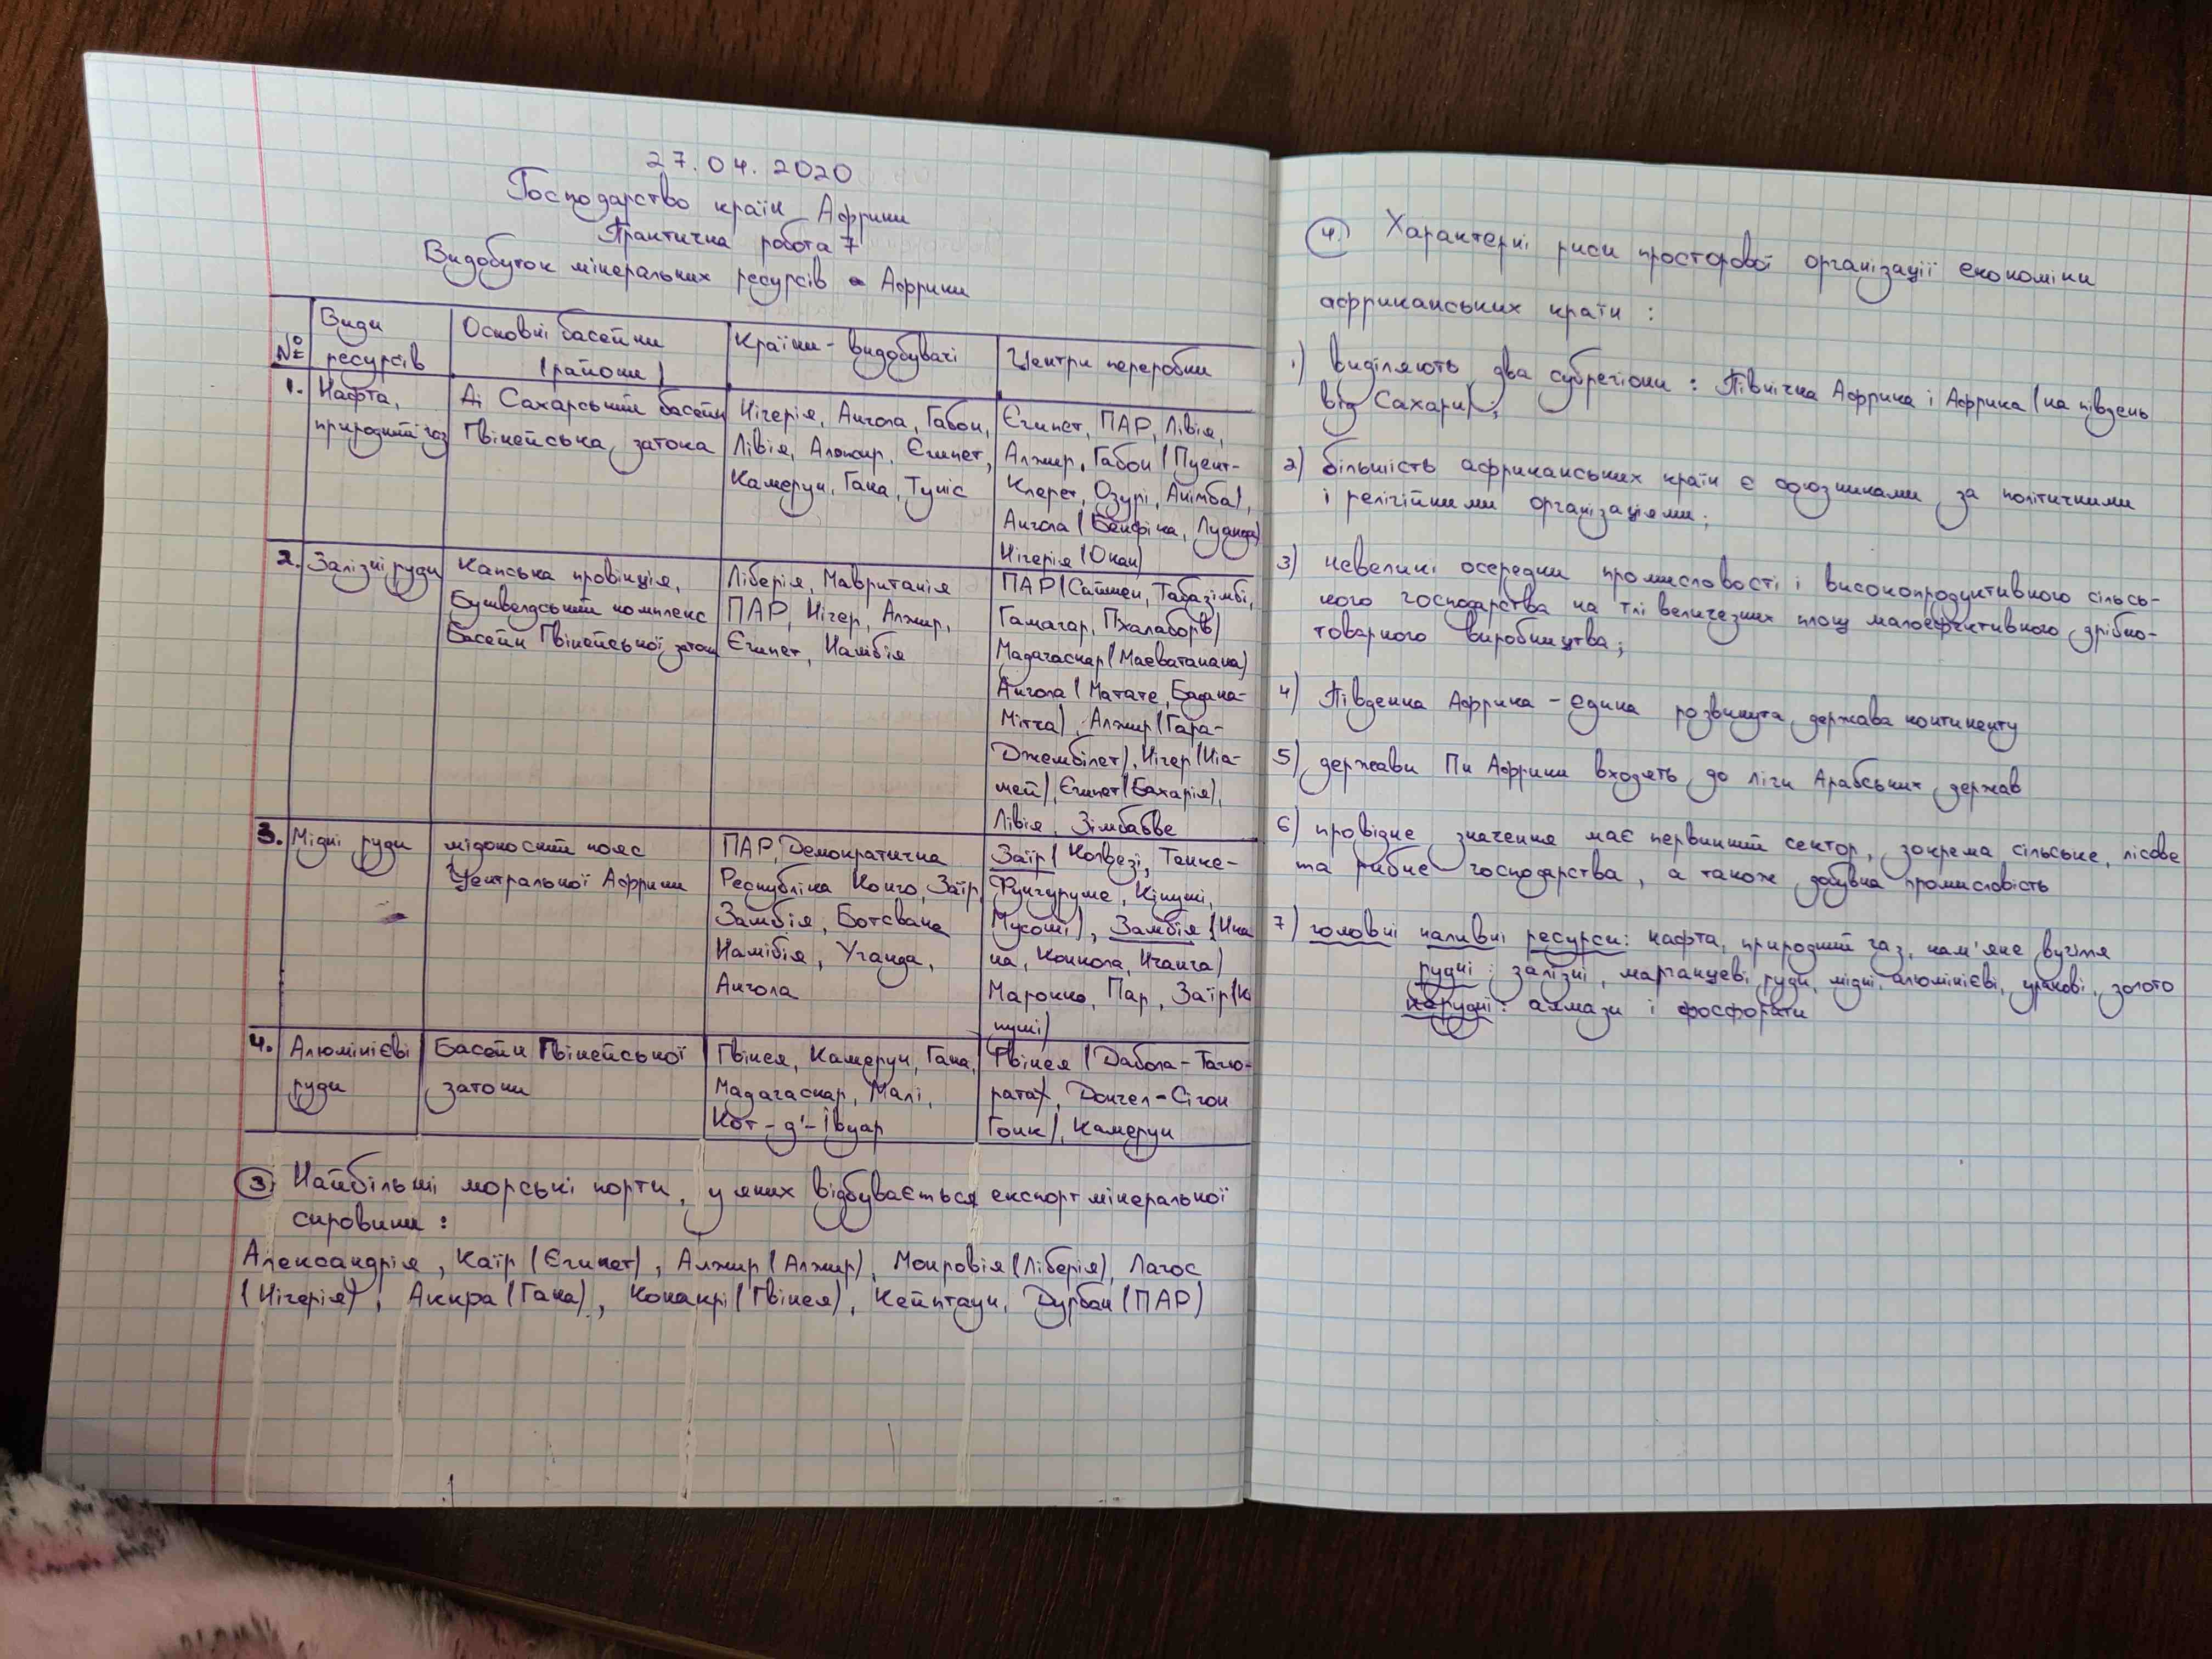 27.04.2020
Господарство країн Африки
Практична робота 7
Видобуток мінеральних ресурсів Африки
№ Види ресурсів
Основні басейни (райони)
Країни-видобувачі
Центри переробки
1. Нафта,
природний газ
Сахарський басейн
Гвінейська затока
Нігерія, Ангола, Габон,
Лівія, Алжир, Єгипет,
Камерун, Гана, Туніс
Єгипет, ПАР, Лівія,
Алжир, Габон (Пуент-
Клерет, Озурі, Анімба),
Ангола (Бенфіка, Луанда)
Нігерія (Окан)
2. Залізні руди
Капська провінція,
Бушвелдський комплекс
Басейн Гвінейської затоки
Ліберія, Мавританія
ПАР, Нігер, Алжир,
Єгипет, Намібія
ПАР (Сайшен, Табазімбі,
Гамагар, Пхалаборв)
Мадагаскар (Маеватанана)
Ангола (Матате, Бадана-
Мітча), Алжир (Гара-
Джембілет), Нігер (Ніа-
мей), Єгипет (Бахарія),
Лівія, Зімбабве
3. Мідні руди
мідоносний пояс
Центральної Африки
ПАР, Демократична
Республіка Конго, Заїр,
Замбія, Ботсвана
Намібія, Уганда,
Ангола
Заїр (Колвезі, Тенке-
Фунгуруме, Кіпуші,
Мусоші), Замбія (Нка
на, Конкола, Нчанга)
Марокко, Пар, Заїр (Кі
пуші)
4. Алюмінієві
руди
Басейн Гвінейської
затоки
Гвінея, Камерун, Гана,
Мадагаскар, Малі,
Кот-д'-Івуар
Гвінея (Дабола-Тагю-
рата), Донгел-Сігон
Гоик), Камерун
3. Найбільші морські порти, у яких відбувається експорт мінеральної
сировини:
Александрія, Каїр (Єгипет), Алжир (Алжир), Монровія (Ліберія), Лагос
(Нігерія), Аккра (Гана), Конакрі (Гвінея), Кейптаун, Дурбан (ПАР)
4. Характерні риси просторової організації економіки
африканських країн:
1) виділяють два субрегіони: Північна Африка і Африка (на південь
від Сахари);
2) більшість африканських країн є союзниками за політичними
і релігійними організаціями;
3) невеликі осередки промисловості і високопродуктивного сільсь-
кого господарства на тлі величезних площ малоефективного дрібно-
товарного виробництва;
4) Південна Африка - єдина розвинута держава континенту
5) держави Пн Африки входять до ліги Арабських держав
6) провідне значення має первинний сектор, зокрема сільське, лісове
та рибне господарства, а також добувна промисловість
7) головні паливні ресурси: нафта, природний газ, кам'яне вугілля
рудні: залізні, марганцеві руди, мідні, алюмінієві, уранові, золото
нерудні: алмази і фосфорити